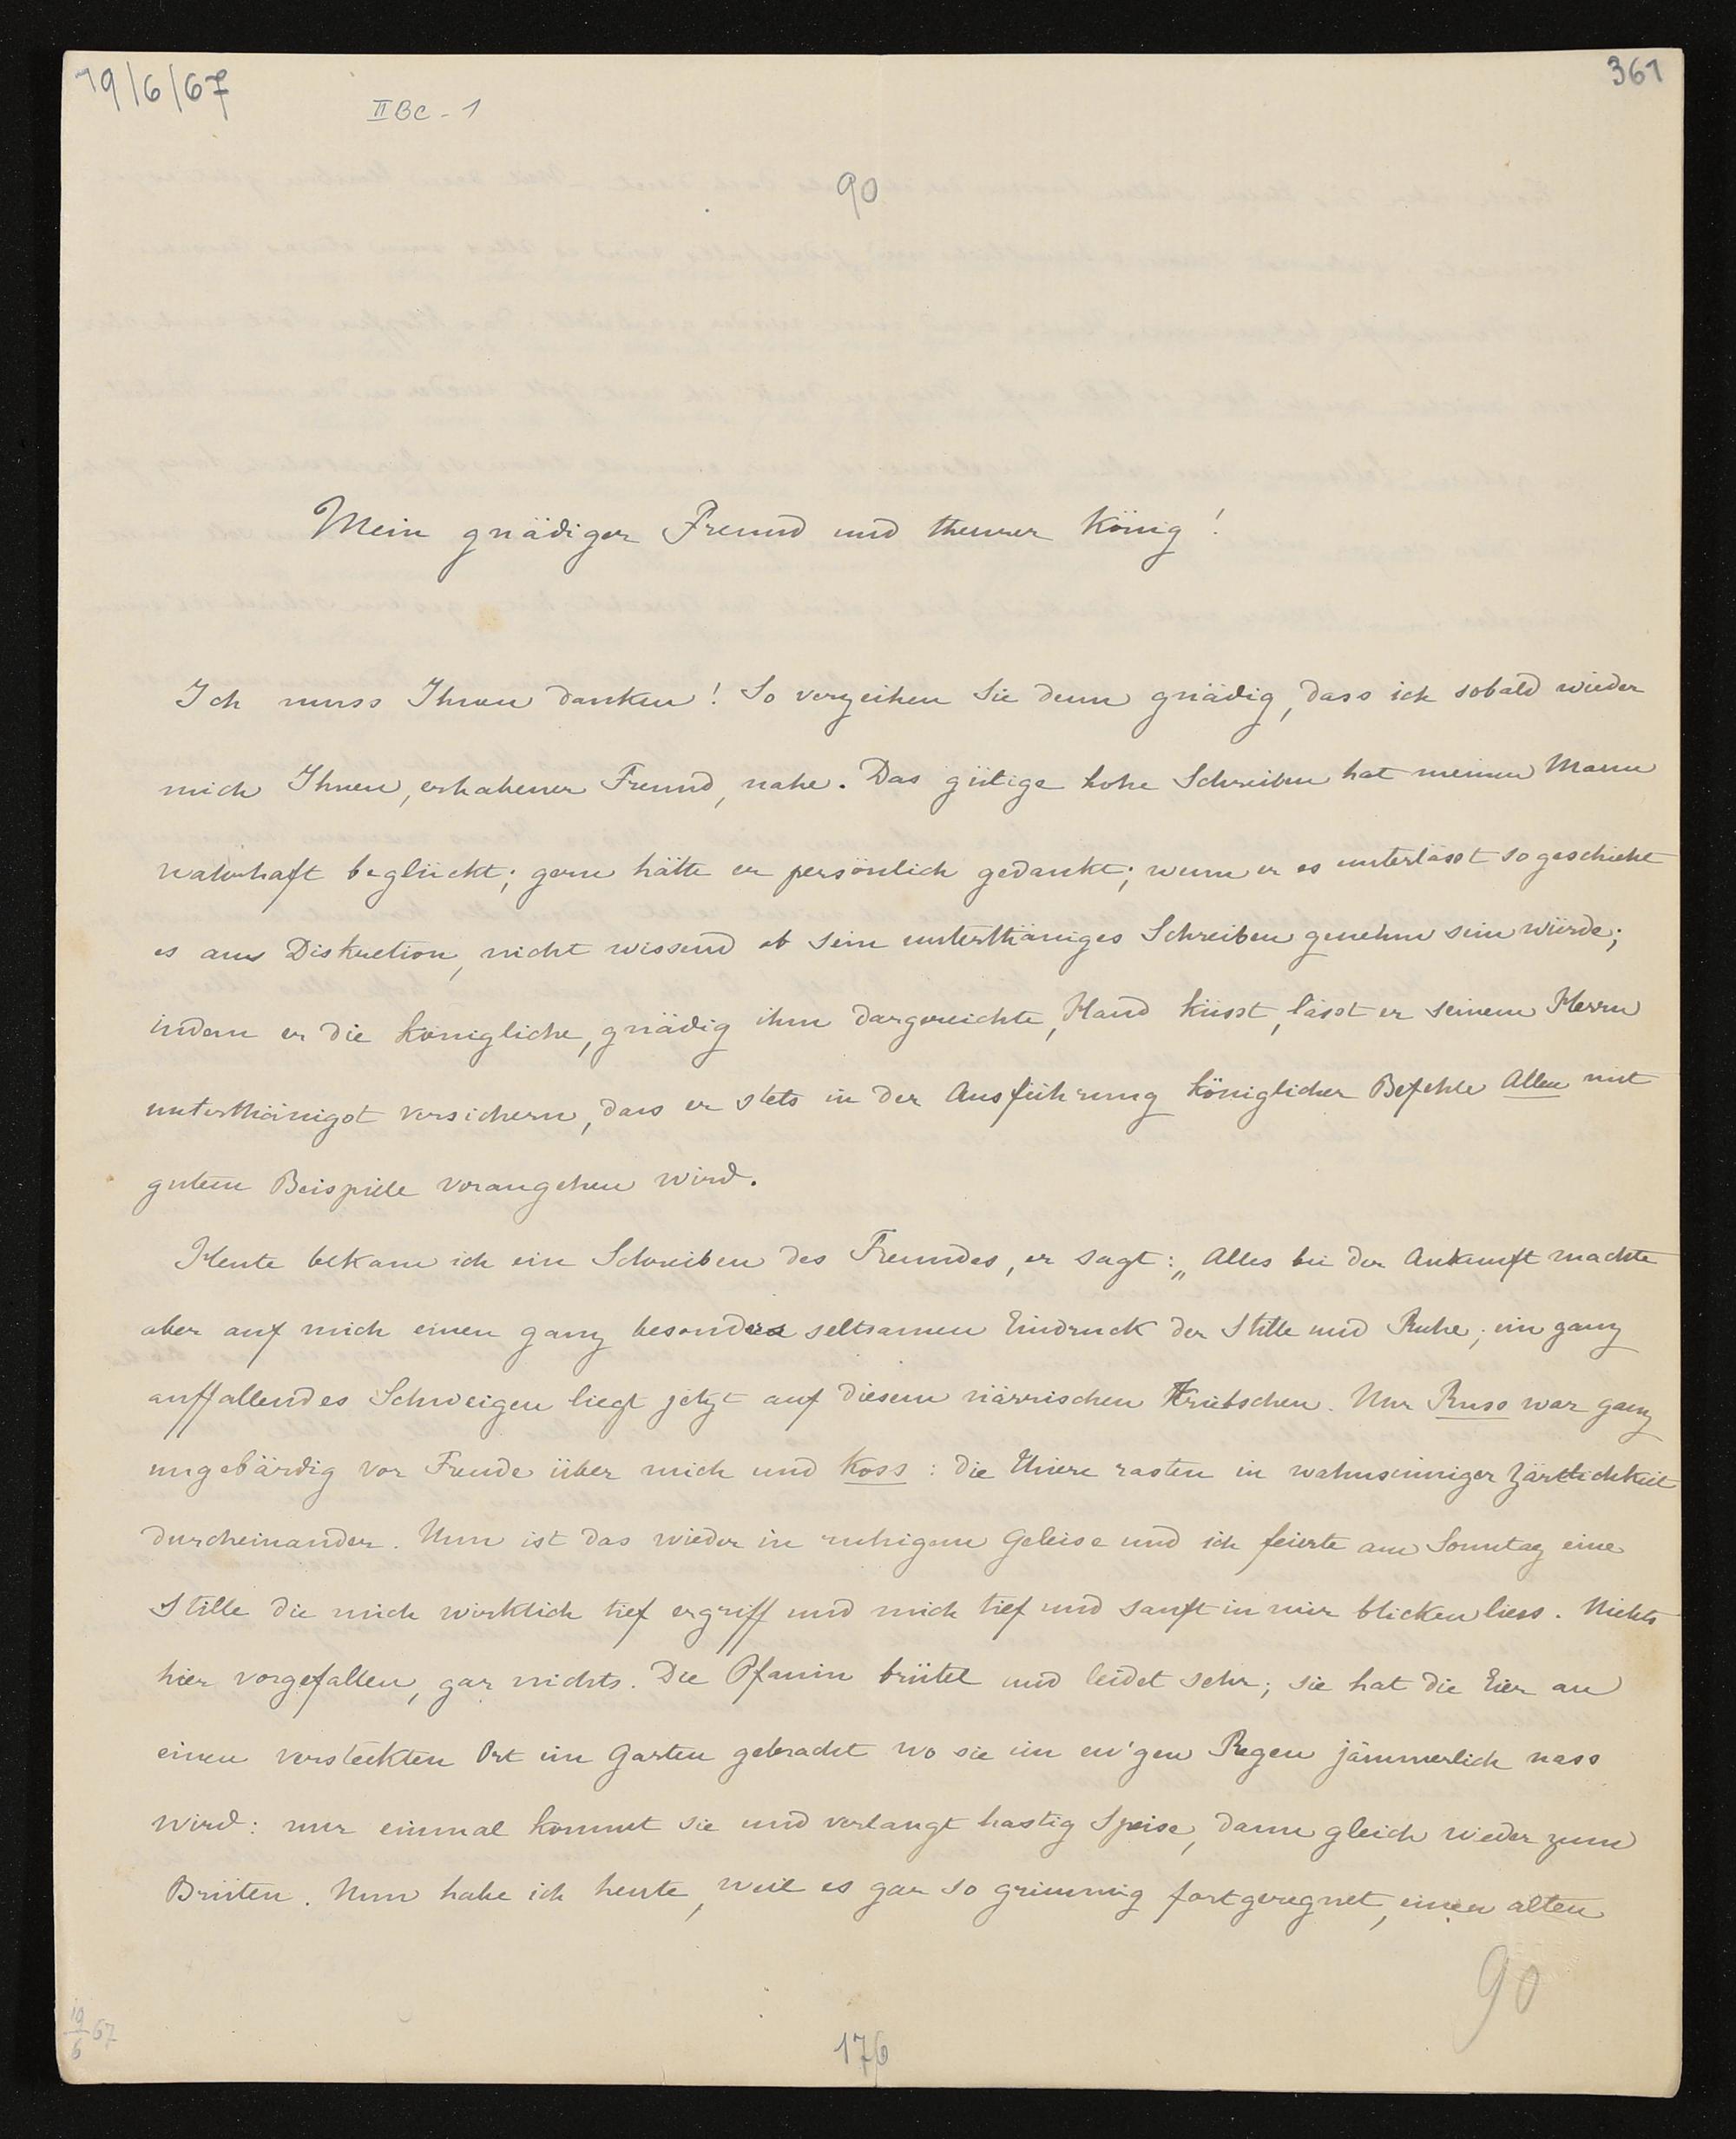 19/6/67
361
II BC - 1
90
Mein gnädiger Freund und theurer König!
Ich muss Ihnen danken! So verzeihen Sie denn gnädig, dass ich sobald wieder
mich Ihnen, erhabener Freund, nahe. Das gütige hohe Schreiben hat meinen Mann
wahrhaft beglückt; gern hätte er persönlich gedankt; wenn er es unterlässt so geschieht
es aus Diskretion, nicht wissend ob sein unterthäniges Schreiben genehm sein würde;
indem er die königliche, gnädig ihm dargereichte, Hand küsst, lässt er seinem Herrn
unterthänigst versichern, dass er stets in der Ausführung königlicher Befehle Allen mit
gutem Beispiele vorangehen wird.
Heute bekam ich ein Schreiben des Freundes, er sagt: „Alles bei der Ankunft machte
aber auf mich einen ganz besonders seltsamen Eindruck der Stille und Ruhe; ein ganz
auffallendes Schweigen liegt jetzt auf diesem närrischen Triebschen. Nur Russ war ganz
ungebärdig vor Freude über mich und Koss: die Thiere rasten in wahnsinniger Zärtlichkeit
durcheinander. Nun ist das wieder in ruhigem Geleise und ich feierte am Sonntag eine
Stille die mich wirklich tief ergriff und mich tief und sanft in mir blicken liess. Nichts
hier vorgefallen, gar nichts. Die Pfauin brütet und leidet sehr; sie hat die Eier an
einen versteckten Ort im Garten gebracht wo sie im ew'gen Regen jämmerlich nass
wird: nur einmal kommt sie und verlangt hastig Speise, dann gleich wieder zum
Brüten. Nun habe ich heute, weil es gar so grimmig fortgeregnet, einen alten
90
19/6 67
176